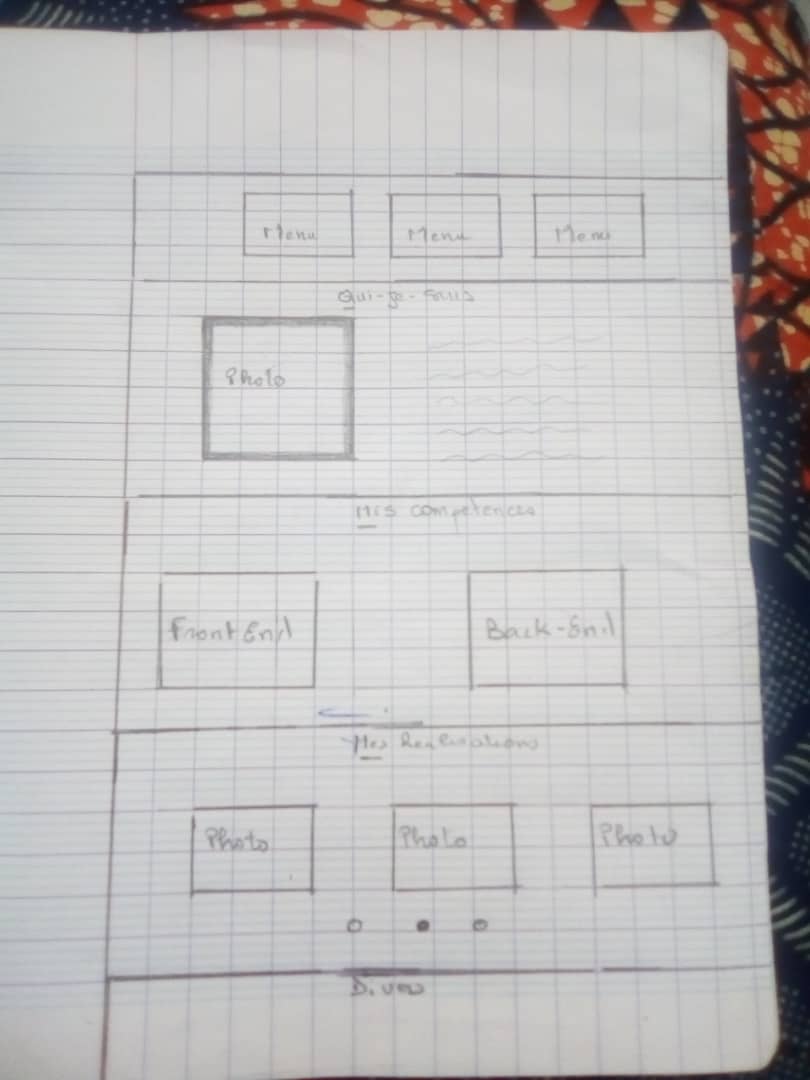 Menu Menu Menu
Qui-je-suis
Photo
Mes competences
Front End Back-End
Mes Realisations
Photo Photo Photo
Divers